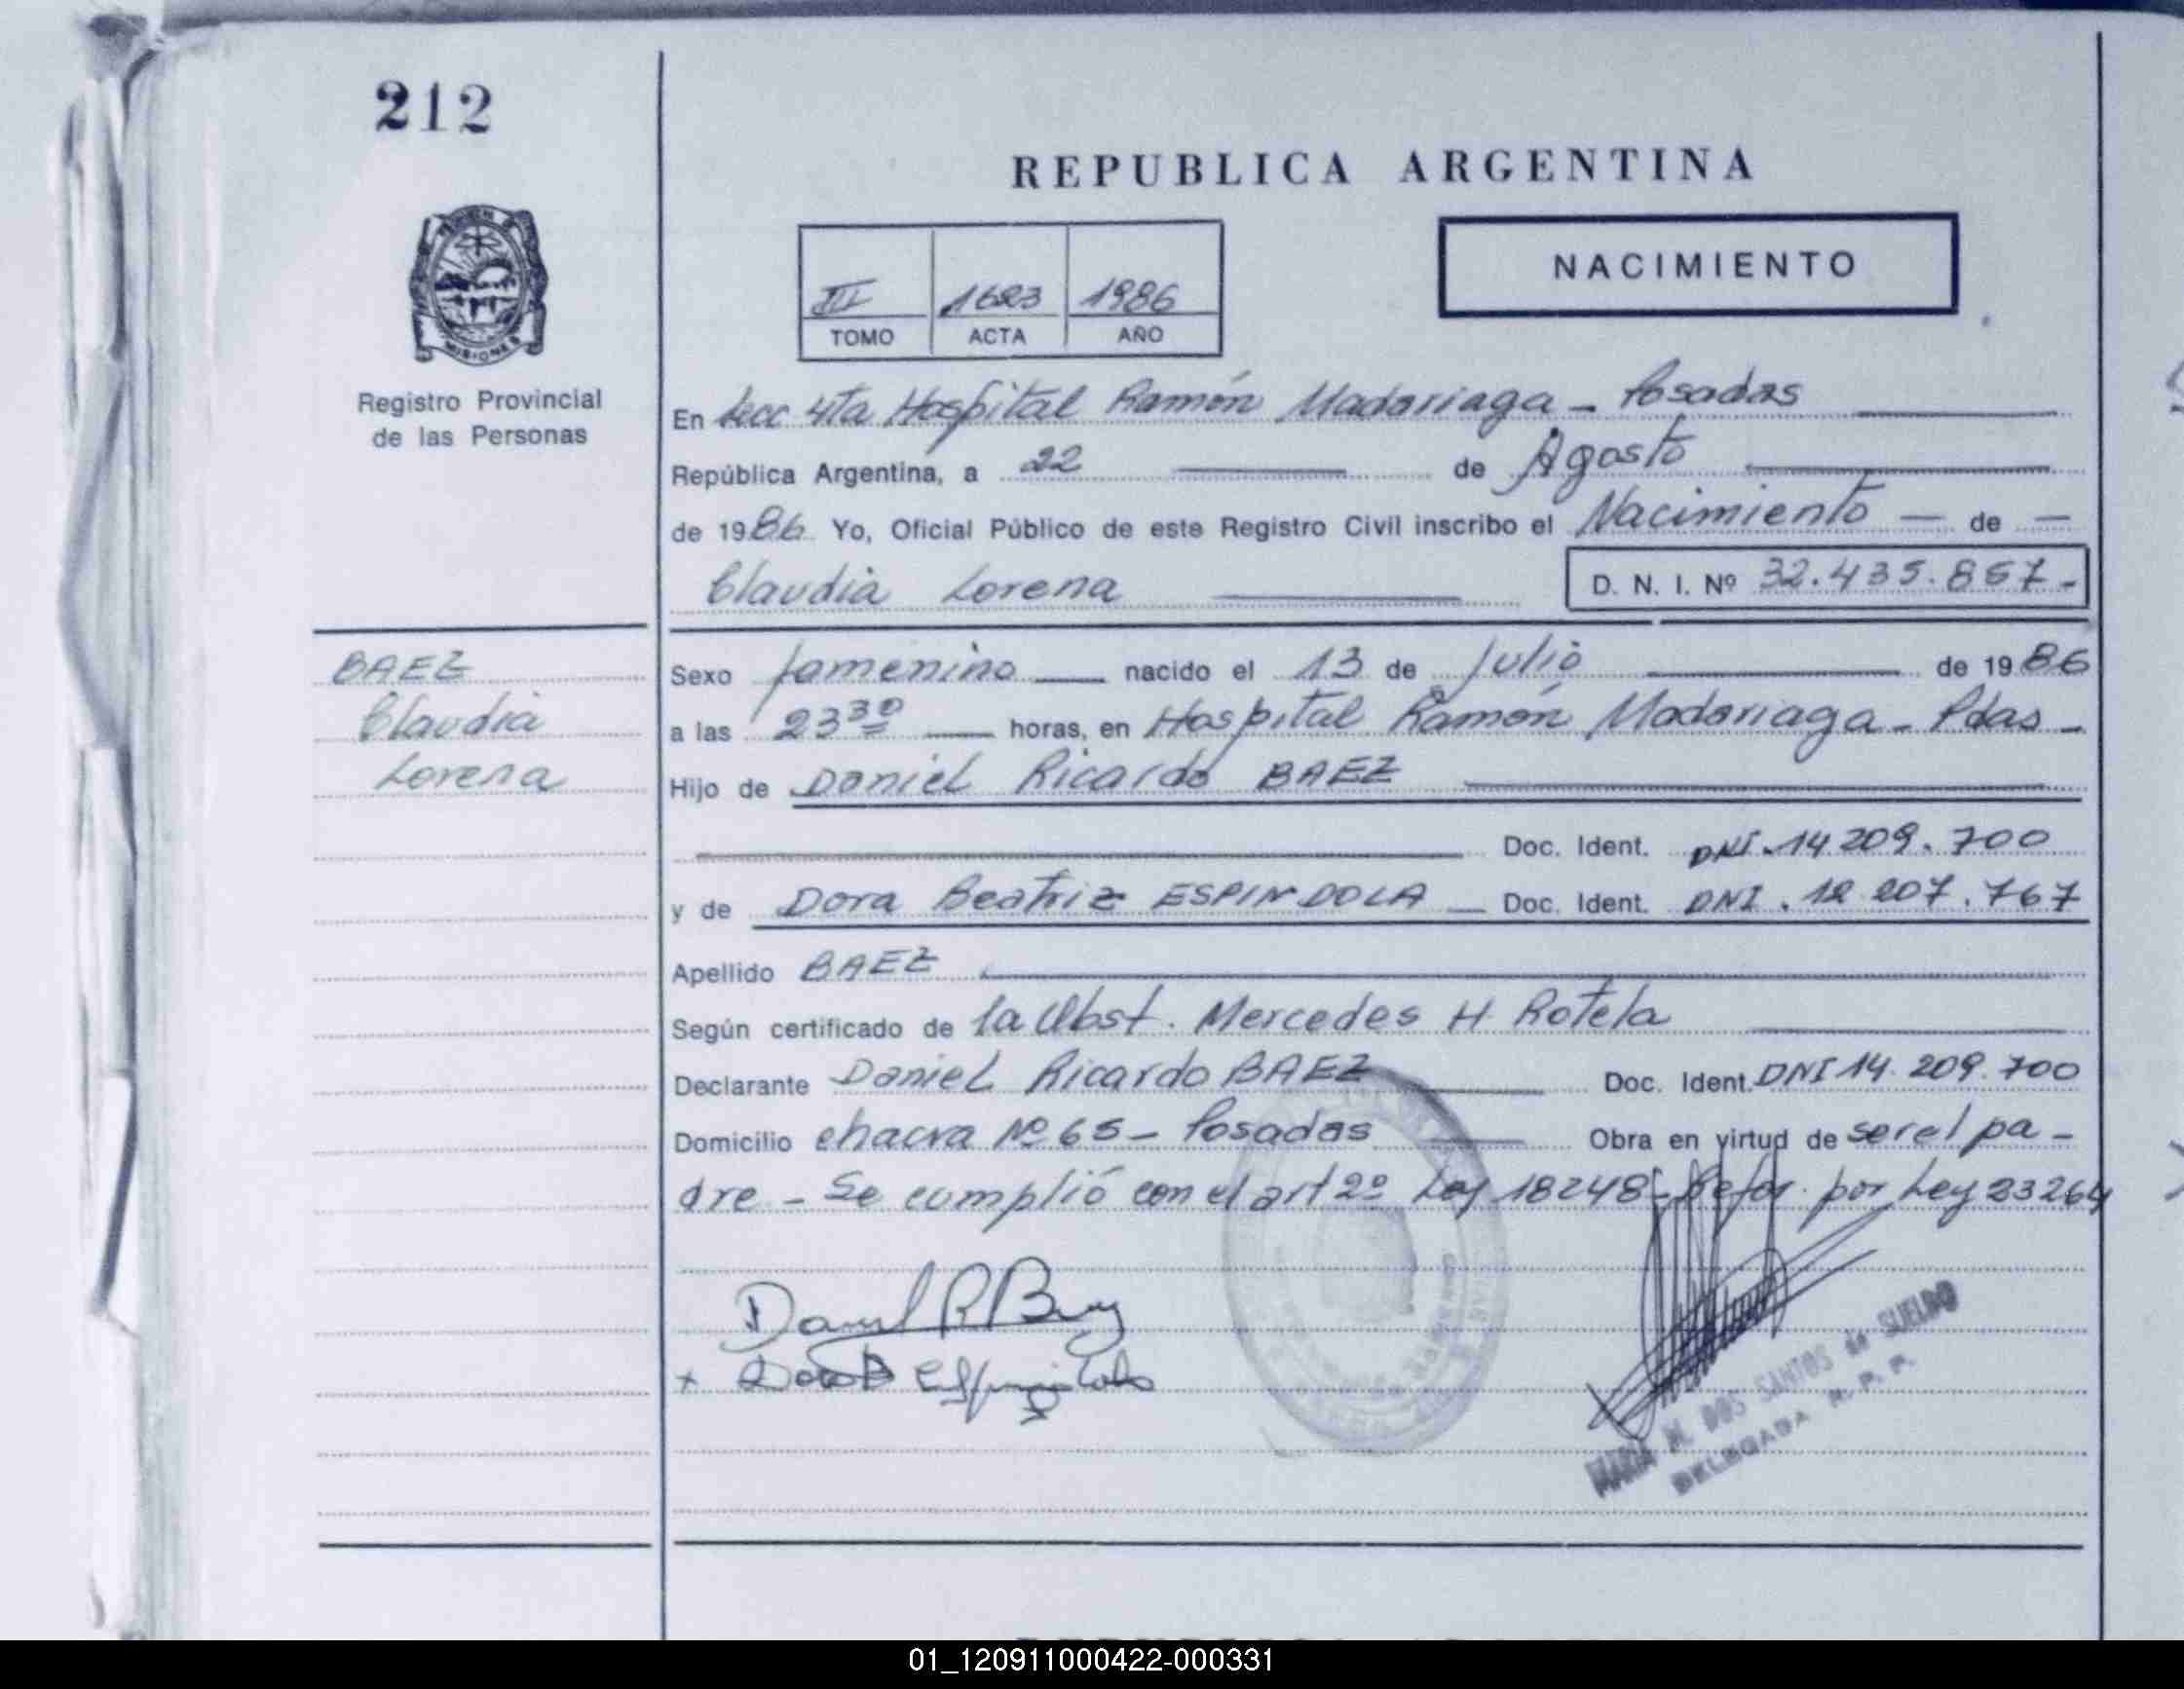 212
REPUBLICA ARGENTINA
NACIMIENTO
III 1623 1986
TOMO ACTA AÑO
MISIONES
Registro Provincial
de las Personas
En Secc 4ta Hospital Ramón Madariaga - Posadas
República Argentina, a 22 de Agosto
de 1986 Yo, Oficial Público de este Registro Civil inscribo el Nacimiento — de —
Claudia Lorena D. N. I. Nº 32.435.857.-
BAEZ
Claudia
Lorena
Sexo famenino nacido el 13 de Julio de 1986
a las 23 30 horas, en Hospital Ramón Madariaga - Pdas -
Hijo de Daniel Ricardo BAEZ
Doc. Ident. DNI. 14 209. 700
y de Dora Beatriz ESPINDOLA Doc. Ident. DNI. 12 207. 767
Apellido BAEZ
Según certificado de la Obst. Mercedes H Rotela
Declarante Daniel Ricardo BAEZ Doc. Ident. DNI 14. 209. 700
Domicilio chacra Nº 65 - Posadas Obra en virtud de ser el pa -
dre - Se cumplió con el art 2º Ley 18248 - Refor. por Ley 23264
Daniel R Baez
+ Dora B Espindola
MARIA M. DOS SANTOS de SUELDO
DELEGADA R. P. P.
01_120911000422-000331